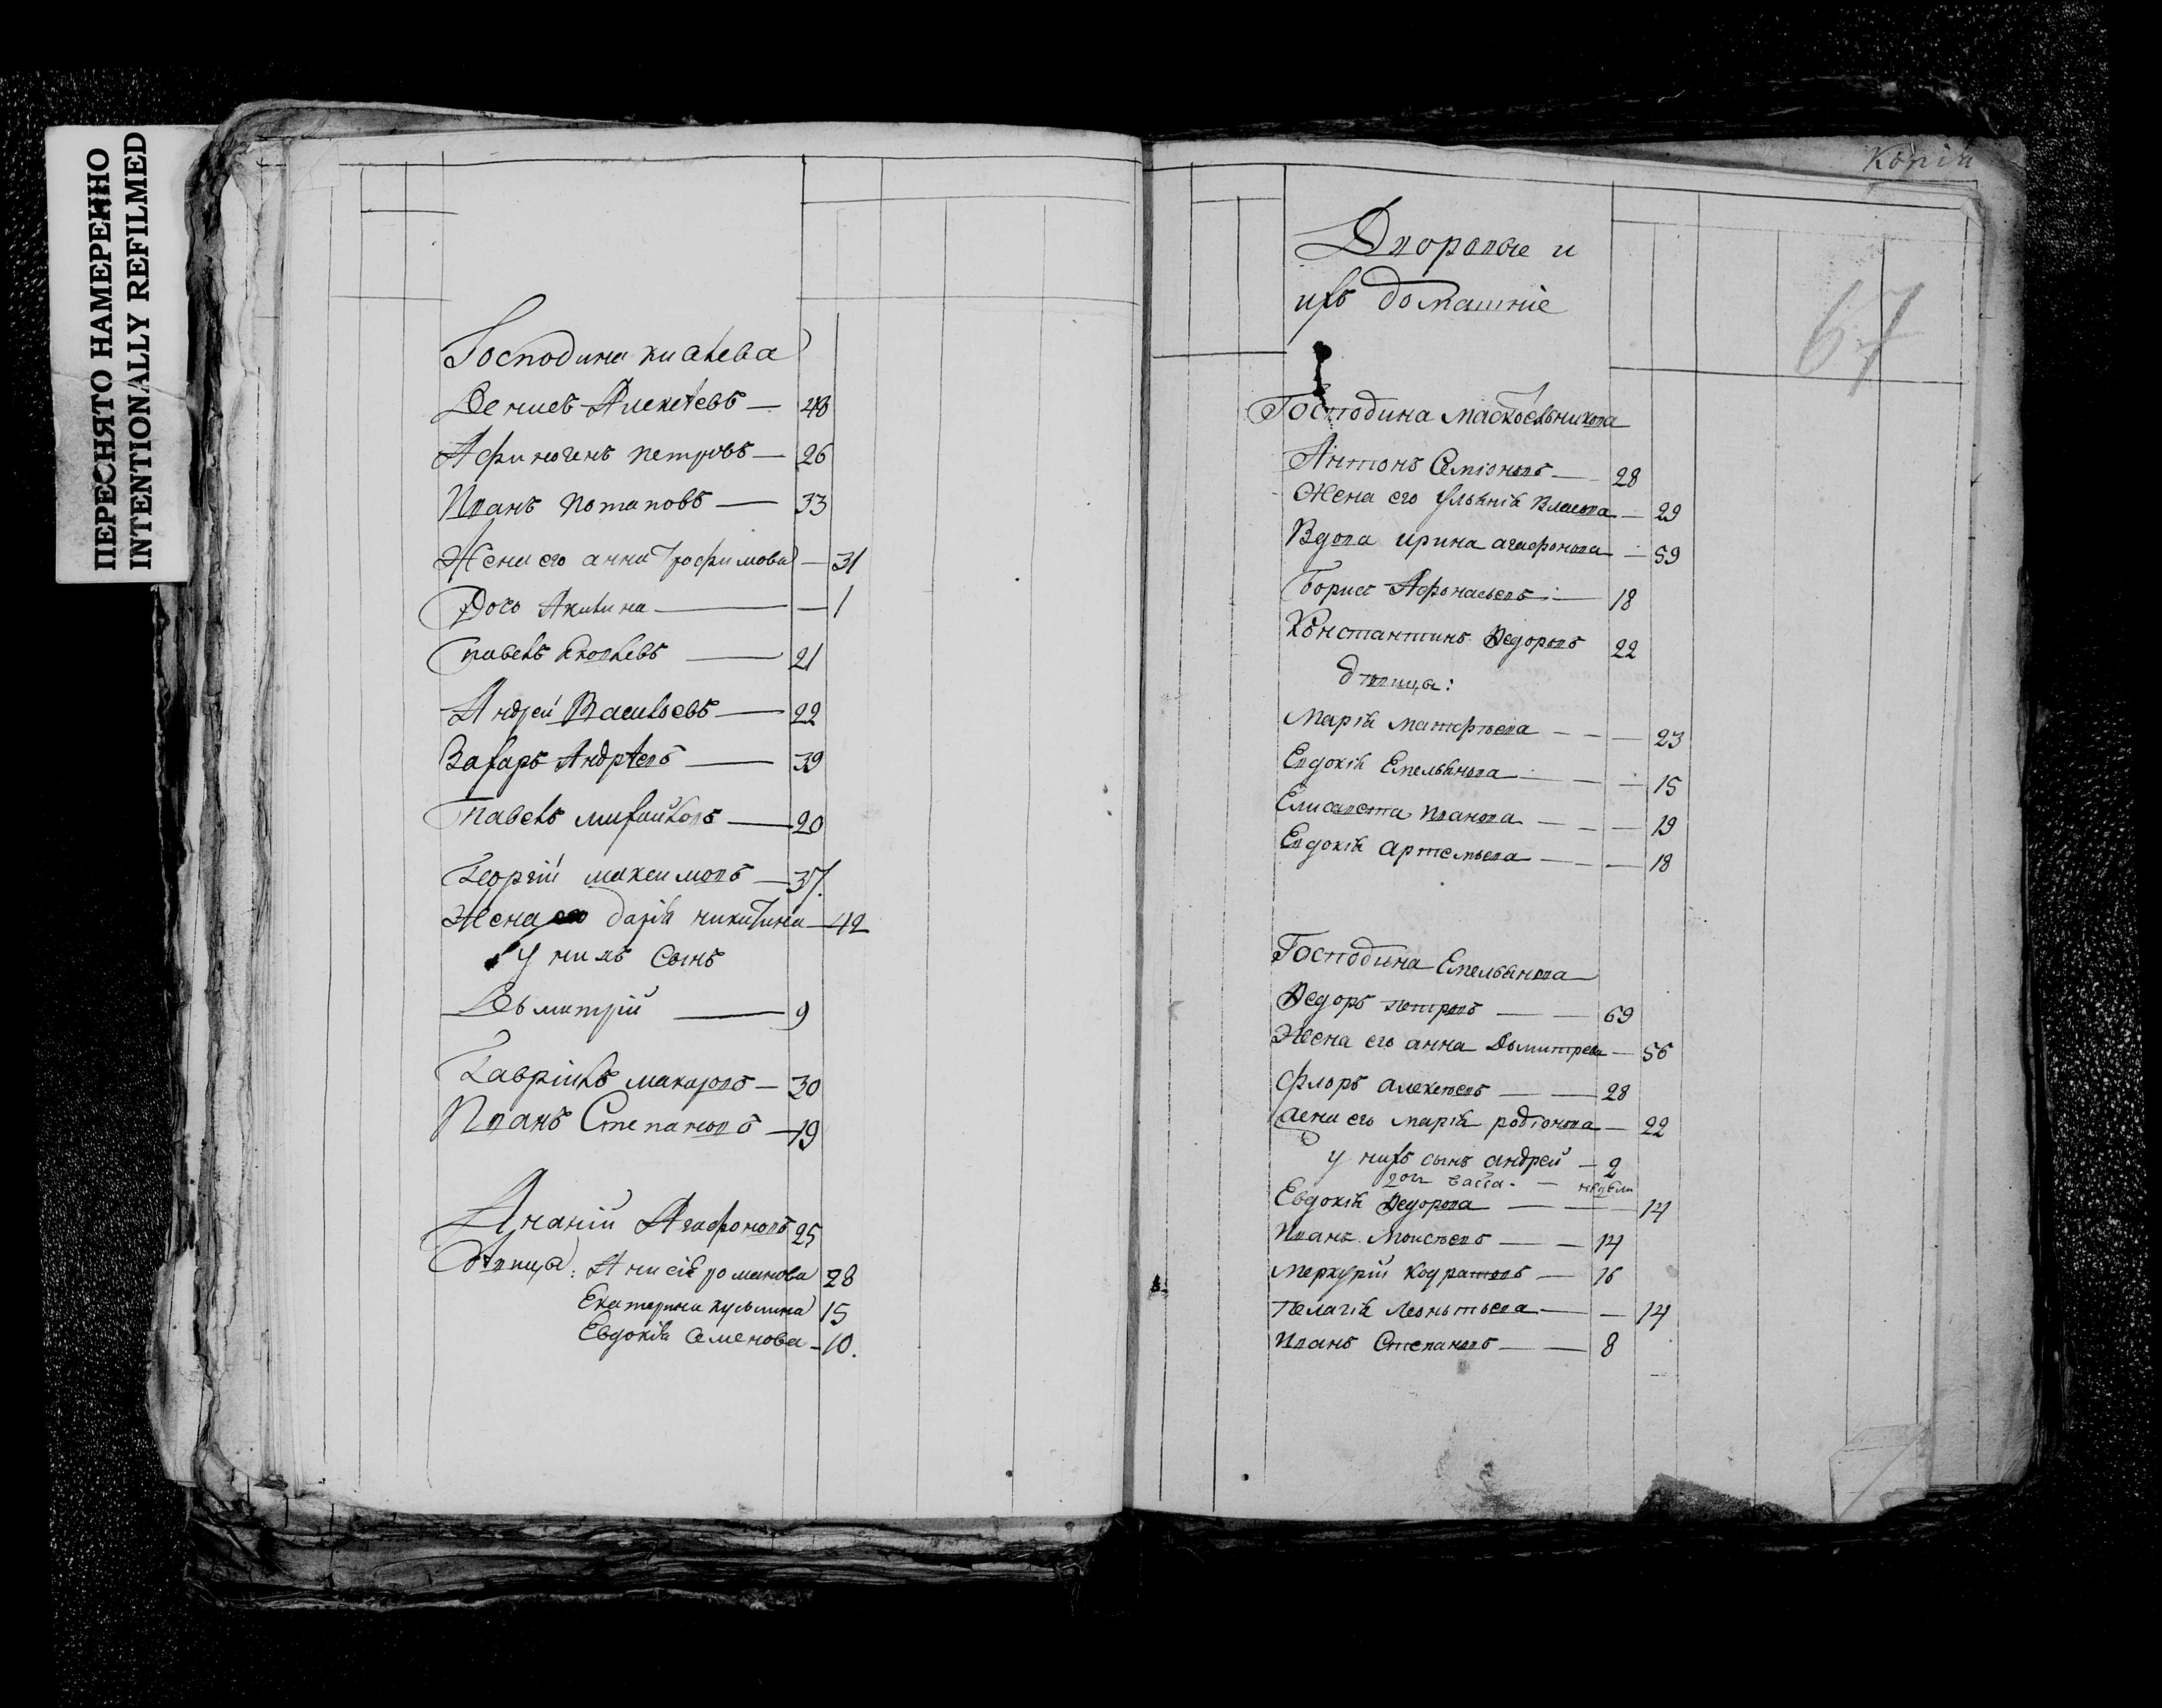 ПЕРЕСНЯТО НАМЕРЕННО
INTENTIONALLY REFILMED
Господина
Денисъ Алексѣевъ — 48
Афиногенъ петровъ — 26
Иванъ потаповъ — 33
Жена его анна Трофимова — 31
Дочь Акилина — 1
павелъ яковлевъ — 21
Андрей Васильевъ — 22
Захаръ Андрѣевъ — 39
Павелъ михайловъ — 20
Георгій максимовъ — 37
Жена его дарія никитина — 42
у нихъ сынъ
Дьмитрій — 9
Гаврiилъ макаровъ — 30
Иванъ Степановъ — 19
Ананій Агафоновъ 25
дѣвица: Анисія романова 28
Екатерина кузьмина 15
Евдокія Семенова — 10.
Копія
67
Дворовые и
ихъ домашніе
Господина
Антонъ Семіоновъ — 28
Жена его Ульянія Власова — 29
Вдова ирина агафонова — 59
Борисъ Афонасьевъ — 18
Константинъ Ѳедоровъ 22
дѣвица:
Марія Матфѣева — 23
Евдокія Емельянова — 15
Елисавета Иванова — 19
Евдокія Артемьева — 18
Господина Емельянова
Ѳедоръ петровъ — 69
Жена его анна Дьмитрева — 56
Флоръ алексѣевъ — 28
жена его марія родіонова — 22
у нихъ сынъ андрей — 2
дочь васса. —
Евдокія Ѳедорова — 14
Иванъ Моисѣевъ — 14
Меркурій Кодратовъ — 16
Пелагія Леонтьева — 14
Иванъ Степановъ — 8